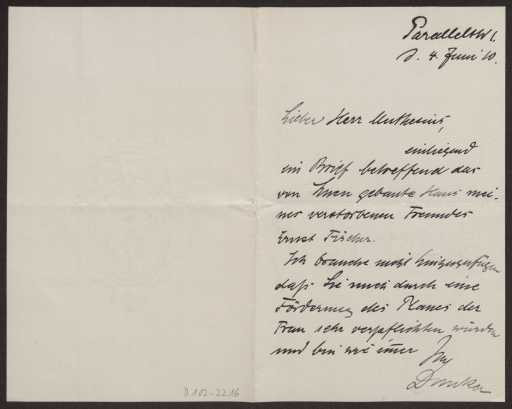 Parallelstr 1.
d. 4. Juni 10.
Lieber Herr Muthesius,
einliegend
ein Brief betreffend das
von Ihnen gebaute Haus mei-
nes verstorbenen Freundes
Ernst Fischer.
Ich brauche nicht hinzuzufügen
daß Sie mich durch eine
Förderung des Planes der
Frau sehr verpflichten würden
und bin wie immer Ihr
D 102-2216